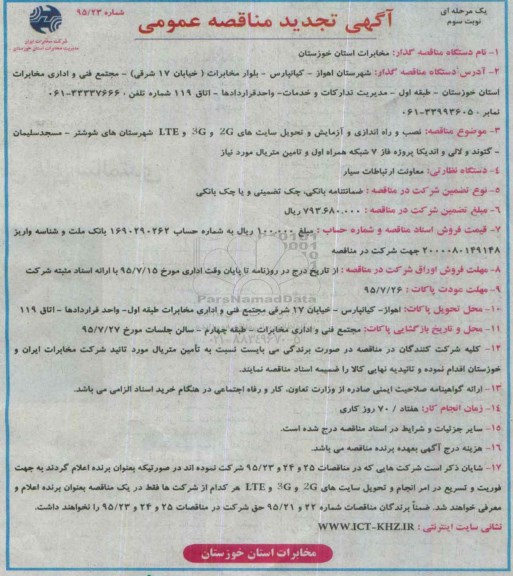 یک مرحله ای
نوبت سوم
آگهی تجدید مناقصه عمومی
شماره ۹۵/۲۳
شرکت مخابرات ایران
مدیریت مخابرات استان خوزستان
۱- نام دستگاه مناقصه گذار: مخابرات استان خوزستان
۲- آدرس دستگاه مناقصه گذار: شهرستان اهواز - کیانپارس - بلوار مخابرات ( خیابان ۱۷ شرقی) - مجتمع فنی و اداری مخابرات
استان خوزستان - طبقه اول - مدیریت تدارکات و خدمات- واحدقراردادها - اتاق ۱۱۹ شماره تلفن : ۳۳۳۳۷۶۶۶-۰۶۱
نمابر : ۳۳۹۹۳۶۰۵-۰۶۱
۳- موضوع مناقصه: نصب و راه اندازی و آزمایش و تحویل سایت های 2G و 3G و LTE شهرستان های شوشتر - مسجدسلیمان
- گتوند و لالی و اندیکا پروژه فاز ۷ شبکه همراه اول و تامین متریال مورد نیاز
۴- دستگاه نظارتی: معاونت ارتباطات سیار
۵- نوع تضمین شرکت در مناقصه : ضمانتنامه بانکی، چک تضمینی و یا چک بانکی
۶- مبلغ تضمین شرکت در مناقصه : ۷۹۳.۶۸۰.۰۰۰ ریال
۷- قیمت فروش اسناد مناقصه و شماره حساب : مبلغ ۱۰۰.۰۰۰ ریال به شماره حساب ۱۶۹۰۲۹۰۲۶۲ بانک ملت و شناسه واریز
۲۰۰۰۰۸۰۱۴۹۱۴۸ جهت شرکت در مناقصه
۸- مهلت فروش اوراق شرکت در مناقصه : از تاریخ درج در روزنامه تا پایان وقت اداری مورخ ۹۵/۷/۱۵ با ارائه اسناد مثبته شرکت
۹- مهلت عودت پاکات : ۹۵/۷/۲۶
۱۰- محل تحویل پاکات: اهواز- کیانپارس - خیابان ۱۷ شرقی مجتمع فنی و اداری مخابرات طبقه اول- واحد قراردادها - اتاق ۱۱۹
۱۱- محل و تاریخ بازگشایی پاکات: مجتمع فنی و اداری مخابرات - طبقه چهارم - سالن جلسات مورخ ۹۵/۷/۲۷
۱۲- کلیه شرکت کنندگان در مناقصه در صورت برندگی می بایست نسبت به تأمین متریال مورد تائید شرکت مخابرات ایران و
خوزستان اقدام نموده و تائیدیه نهایی کالا را ضمیمه اسناد مناقصه نمایند.
۱۳- ارائه گواهینامه صلاحیت ایمنی صادره از وزارت تعاون، کار و رفاه اجتماعی در هنگام خرید اسناد الزامی می باشد.
۱۴- زمان انجام کار: هفتاد / ۷۰ روز کاری
۱۵- سایر جزئیات و شرایط در اسناد مناقصه درج شده است.
۱۶- هزینه درج آگهی بعهده برنده مناقصه می باشد.
۱۷- شایان ذکر است شرکت هایی که در مناقصات ۲۵ و ۲۴ و ۹۵/۲۳ شرکت نموده اند در صورتیکه بعنوان برنده اعلام گردند به جهت
فوریت و تسریع در امر انجام و تحویل سایت های 2G و 3G و LTE هر کدام از شرکت ها فقط در یک مناقصه بعنوان برنده اعلام و
معرفی خواهند شد. ضمناً برندگان مناقصات شماره ۲۲ و ۹۵/۲۱ حق شرکت در مناقصات ۲۵ و ۲۴ و ۹۵/۲۳ را نخواهند داشت.
نشانی سایت اینترنتی : WWW.ICT-KHZ.IR
مخابرات استان خوزستان
ParsNamadData